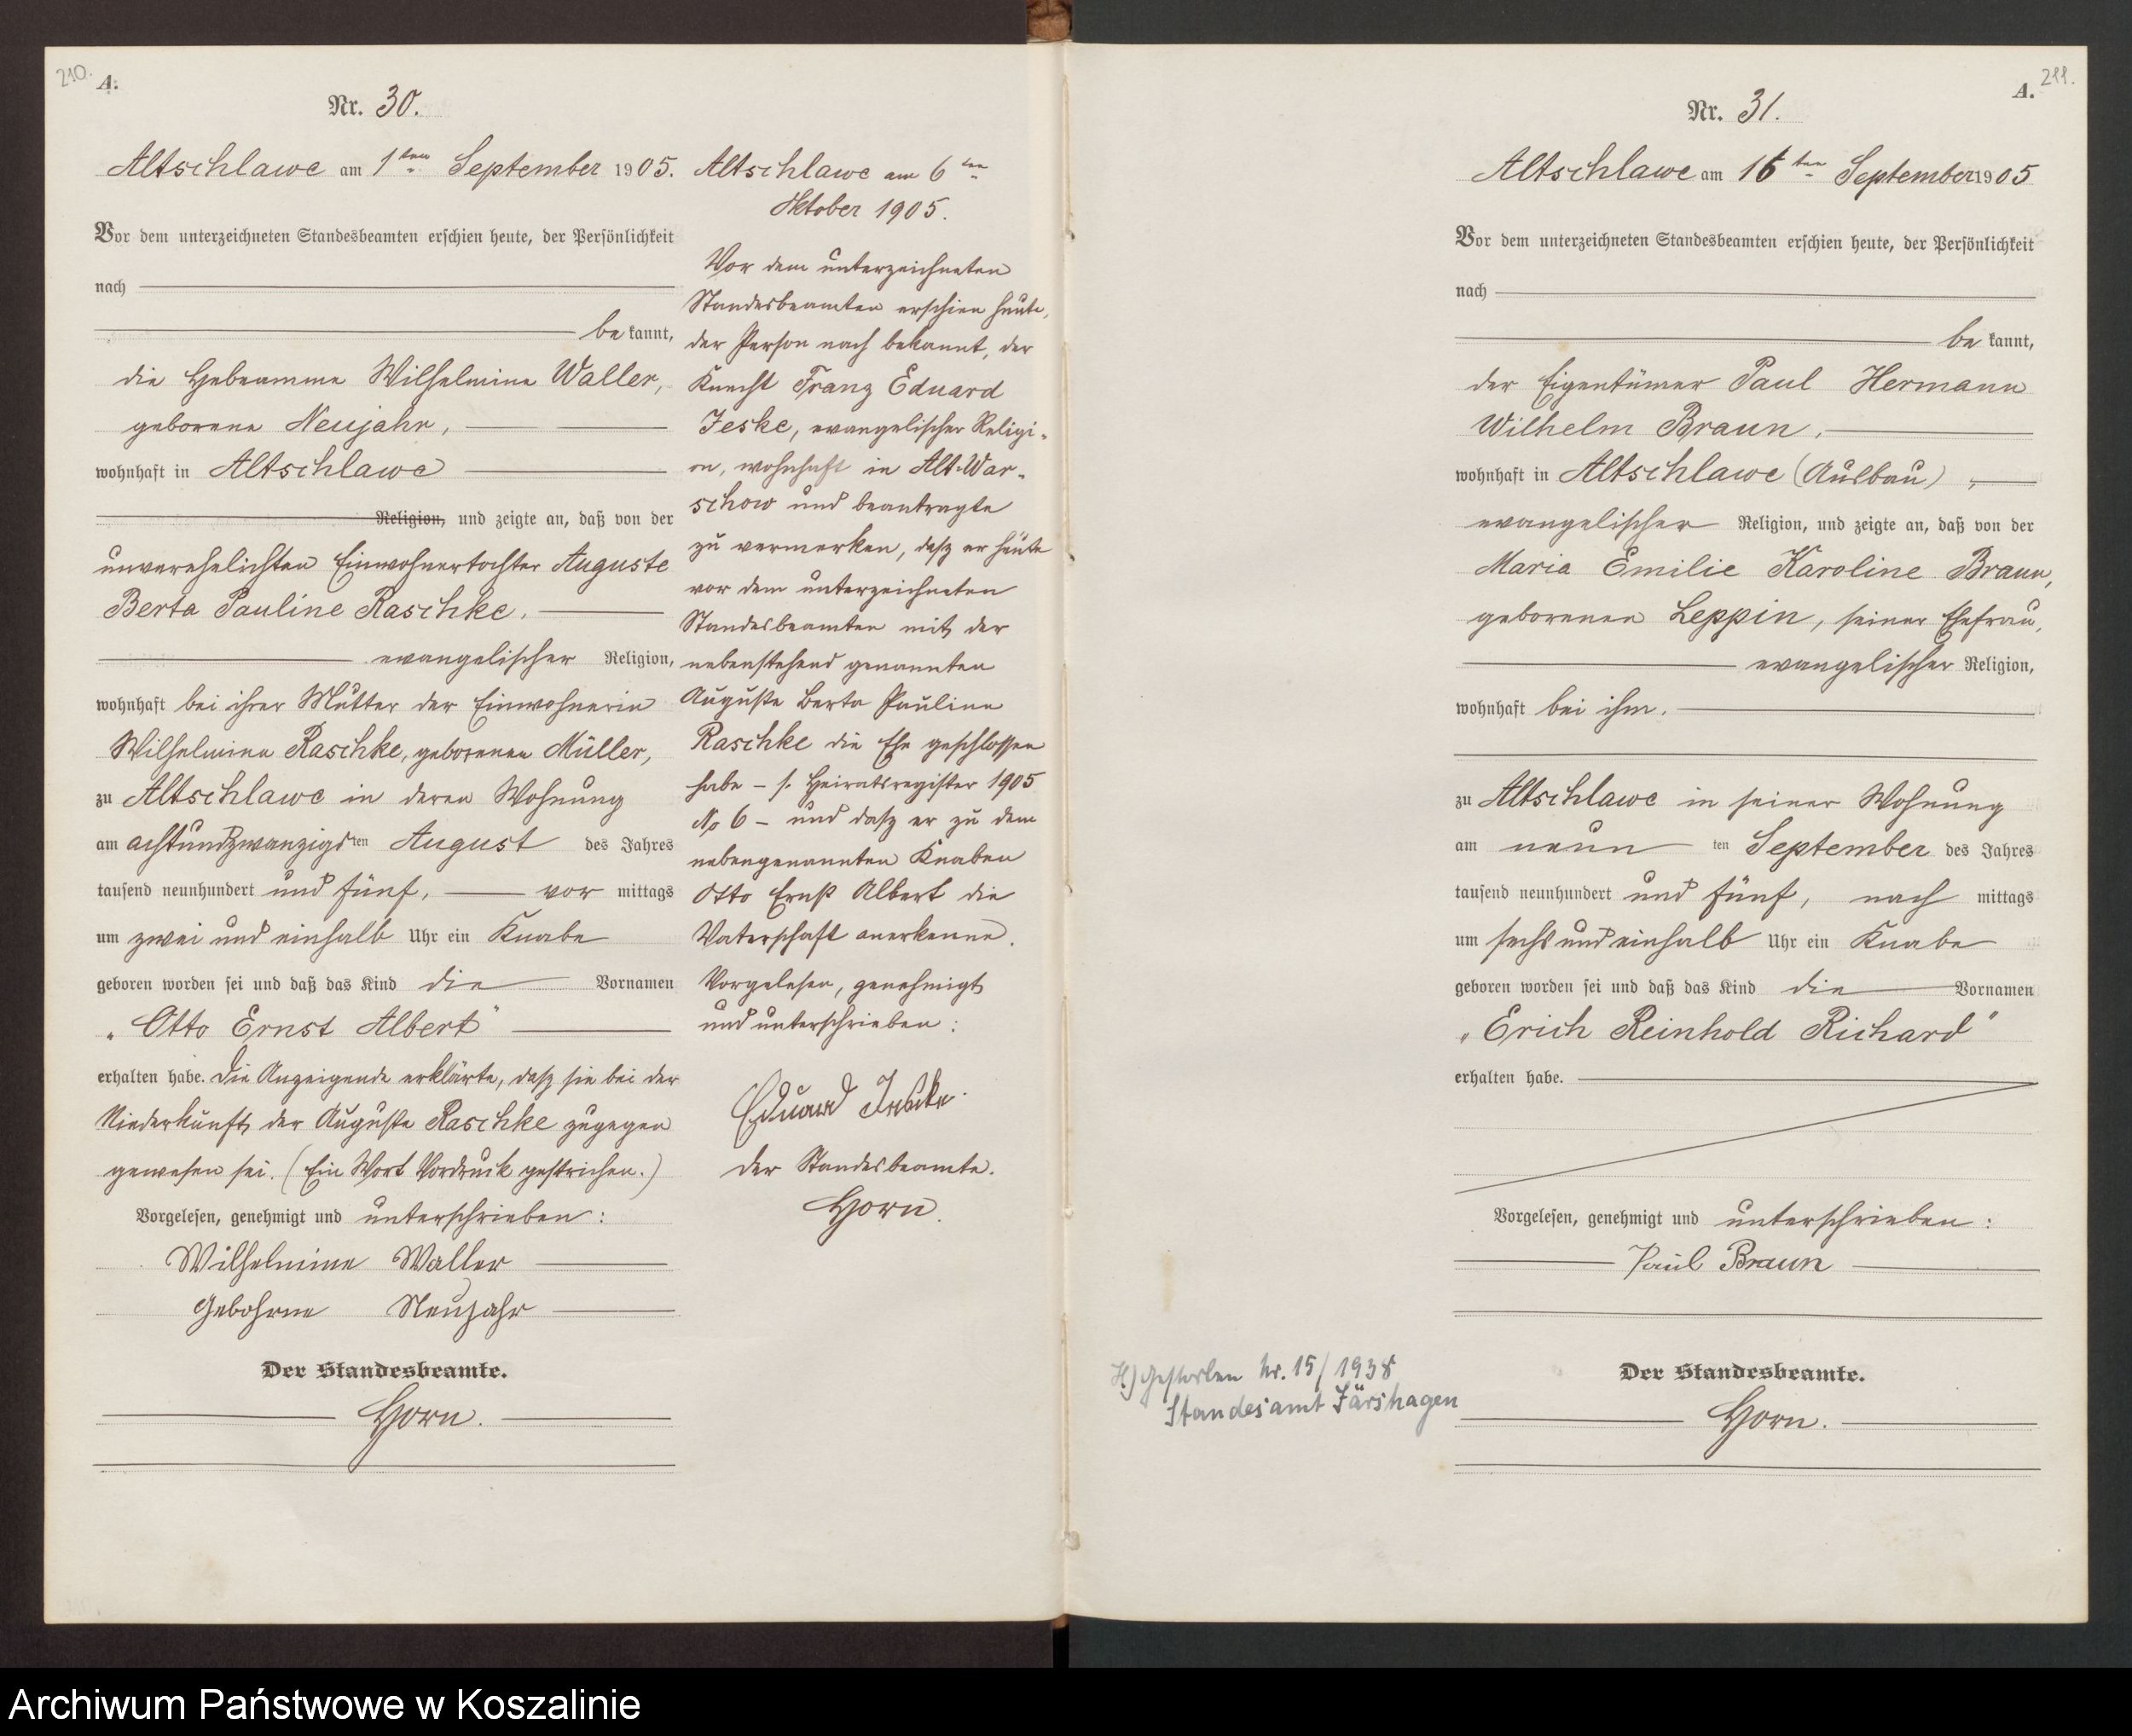 210.
A.
Nr. 30.
Altschlawe am 1ten September 1905.
Vor dem unterzeichneten Standesbeamten erschien heute, der Persönlichkeit
nach
be kannt,
die Hebeamme Wilhelmine Waller,
geborene Neujahr,
wohnhaft in Altschlawe
Religion, und zeigte an, daß von der
unverehelichten Einwohnertochter Auguste
Berta Pauline Raschke,
evangelischer Religion,
wohnhaft bei ihrer Mutter der Einwohnerin
Wilhelmine Raschke, geborenen Müller,
zu Altschlawe in deren Wohnung
am achtundzwanzigsten August des Jahres
tausend neunhundert und fünf, vor mittags
um zwei und einhalb Uhr ein Knabe
geboren worden sei und daß das Kind die Vornamen
„Otto Ernst Albert"
erhalten habe. Die Anzeigende erklärte, daß sie bei der
Niederkunft der Auguste Raschke zugegen
gewesen sei. (Ein Wort Vordruck gestrichen.)
Vorgelesen, genehmigt und unterschrieben:
Wilhelmine Waller
Gebohrne Neujahr
Der Standesbeamte.
Horn.
Altschlawe am 6ten
Oktober 1905.
Vor dem unterzeichneten
Standesbeamten erschien heute,
der Person nach bekannt, der
Knecht Franz Eduard
Jeske, evangelischer Religi-
on, wohnhaft in Alt-War-
schow und beantragte
zu vermerken, daß er heute
vor dem unterzeichneten
Standesbeamten mit der
nebenstehend genannten
Auguste Berta Pauline
Raschke die Ehe geschlossen
habe – s. Heiratsregister 1905
No 6 – und daß er zu dem
nebengenannten Knaben
Otto Ernst Albert die
Vaterschaft anerkenne.
Vorgelesen, genehmigt
und unterschrieben:
Eduard Jeske.
Der Standesbeamte.
Horn.
211.
A.
Nr. 31.
Altschlawe am 16ten September 1905
Vor dem unterzeichneten Standesbeamten erschien heute, der Persönlichkeit
nach
be kannt,
der Eigentümer Paul Hermann
Wilhelm Braun,
wohnhaft in Altschlawe (Ausbau),
evangelischer Religion, und zeigte an, daß von der
Maria Emilie Karoline Braun,
geborenen Leppin, seiner Ehefrau,
evangelischer Religion,
wohnhaft bei ihm,
zu Altschlawe in seiner Wohnung
am neun ten September des Jahres
tausend neunhundert und fünf, nach mittags
um sechs und einhalb Uhr ein Knabe
geboren worden sei und daß das Kind die Vornamen
„Erich Reinhold Richard"
erhalten habe.
Vorgelesen, genehmigt und unterschrieben:
Paul Braun
Der Standesbeamte.
Horn.
H) Gestorben Nr. 15/1938
Standesamt Järshagen
Archiwum Państwowe w Koszalinie